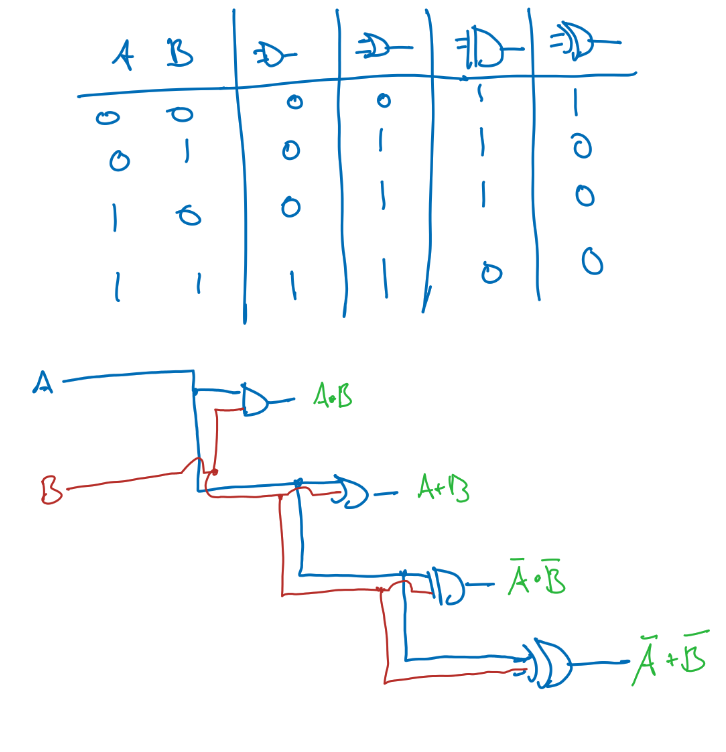 A B
0 0 0 0 1 1
0 1 0 1 1 0
1 0 0 1 1 0
1 1 1 1 0 0
A
A•B
B
A+B
A̅•B̅
A̅+B̅